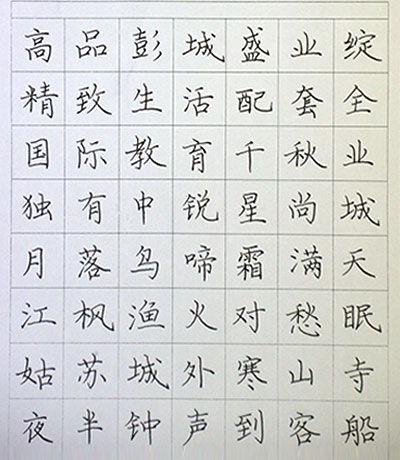 高品彭城盛业绽
精致生活配套全
国际教育千秋业
独有中锐星尚城
月落鸟啼霜满天
江枫渔火对愁眠
姑苏城外寒山寺
夜半钟声到客船